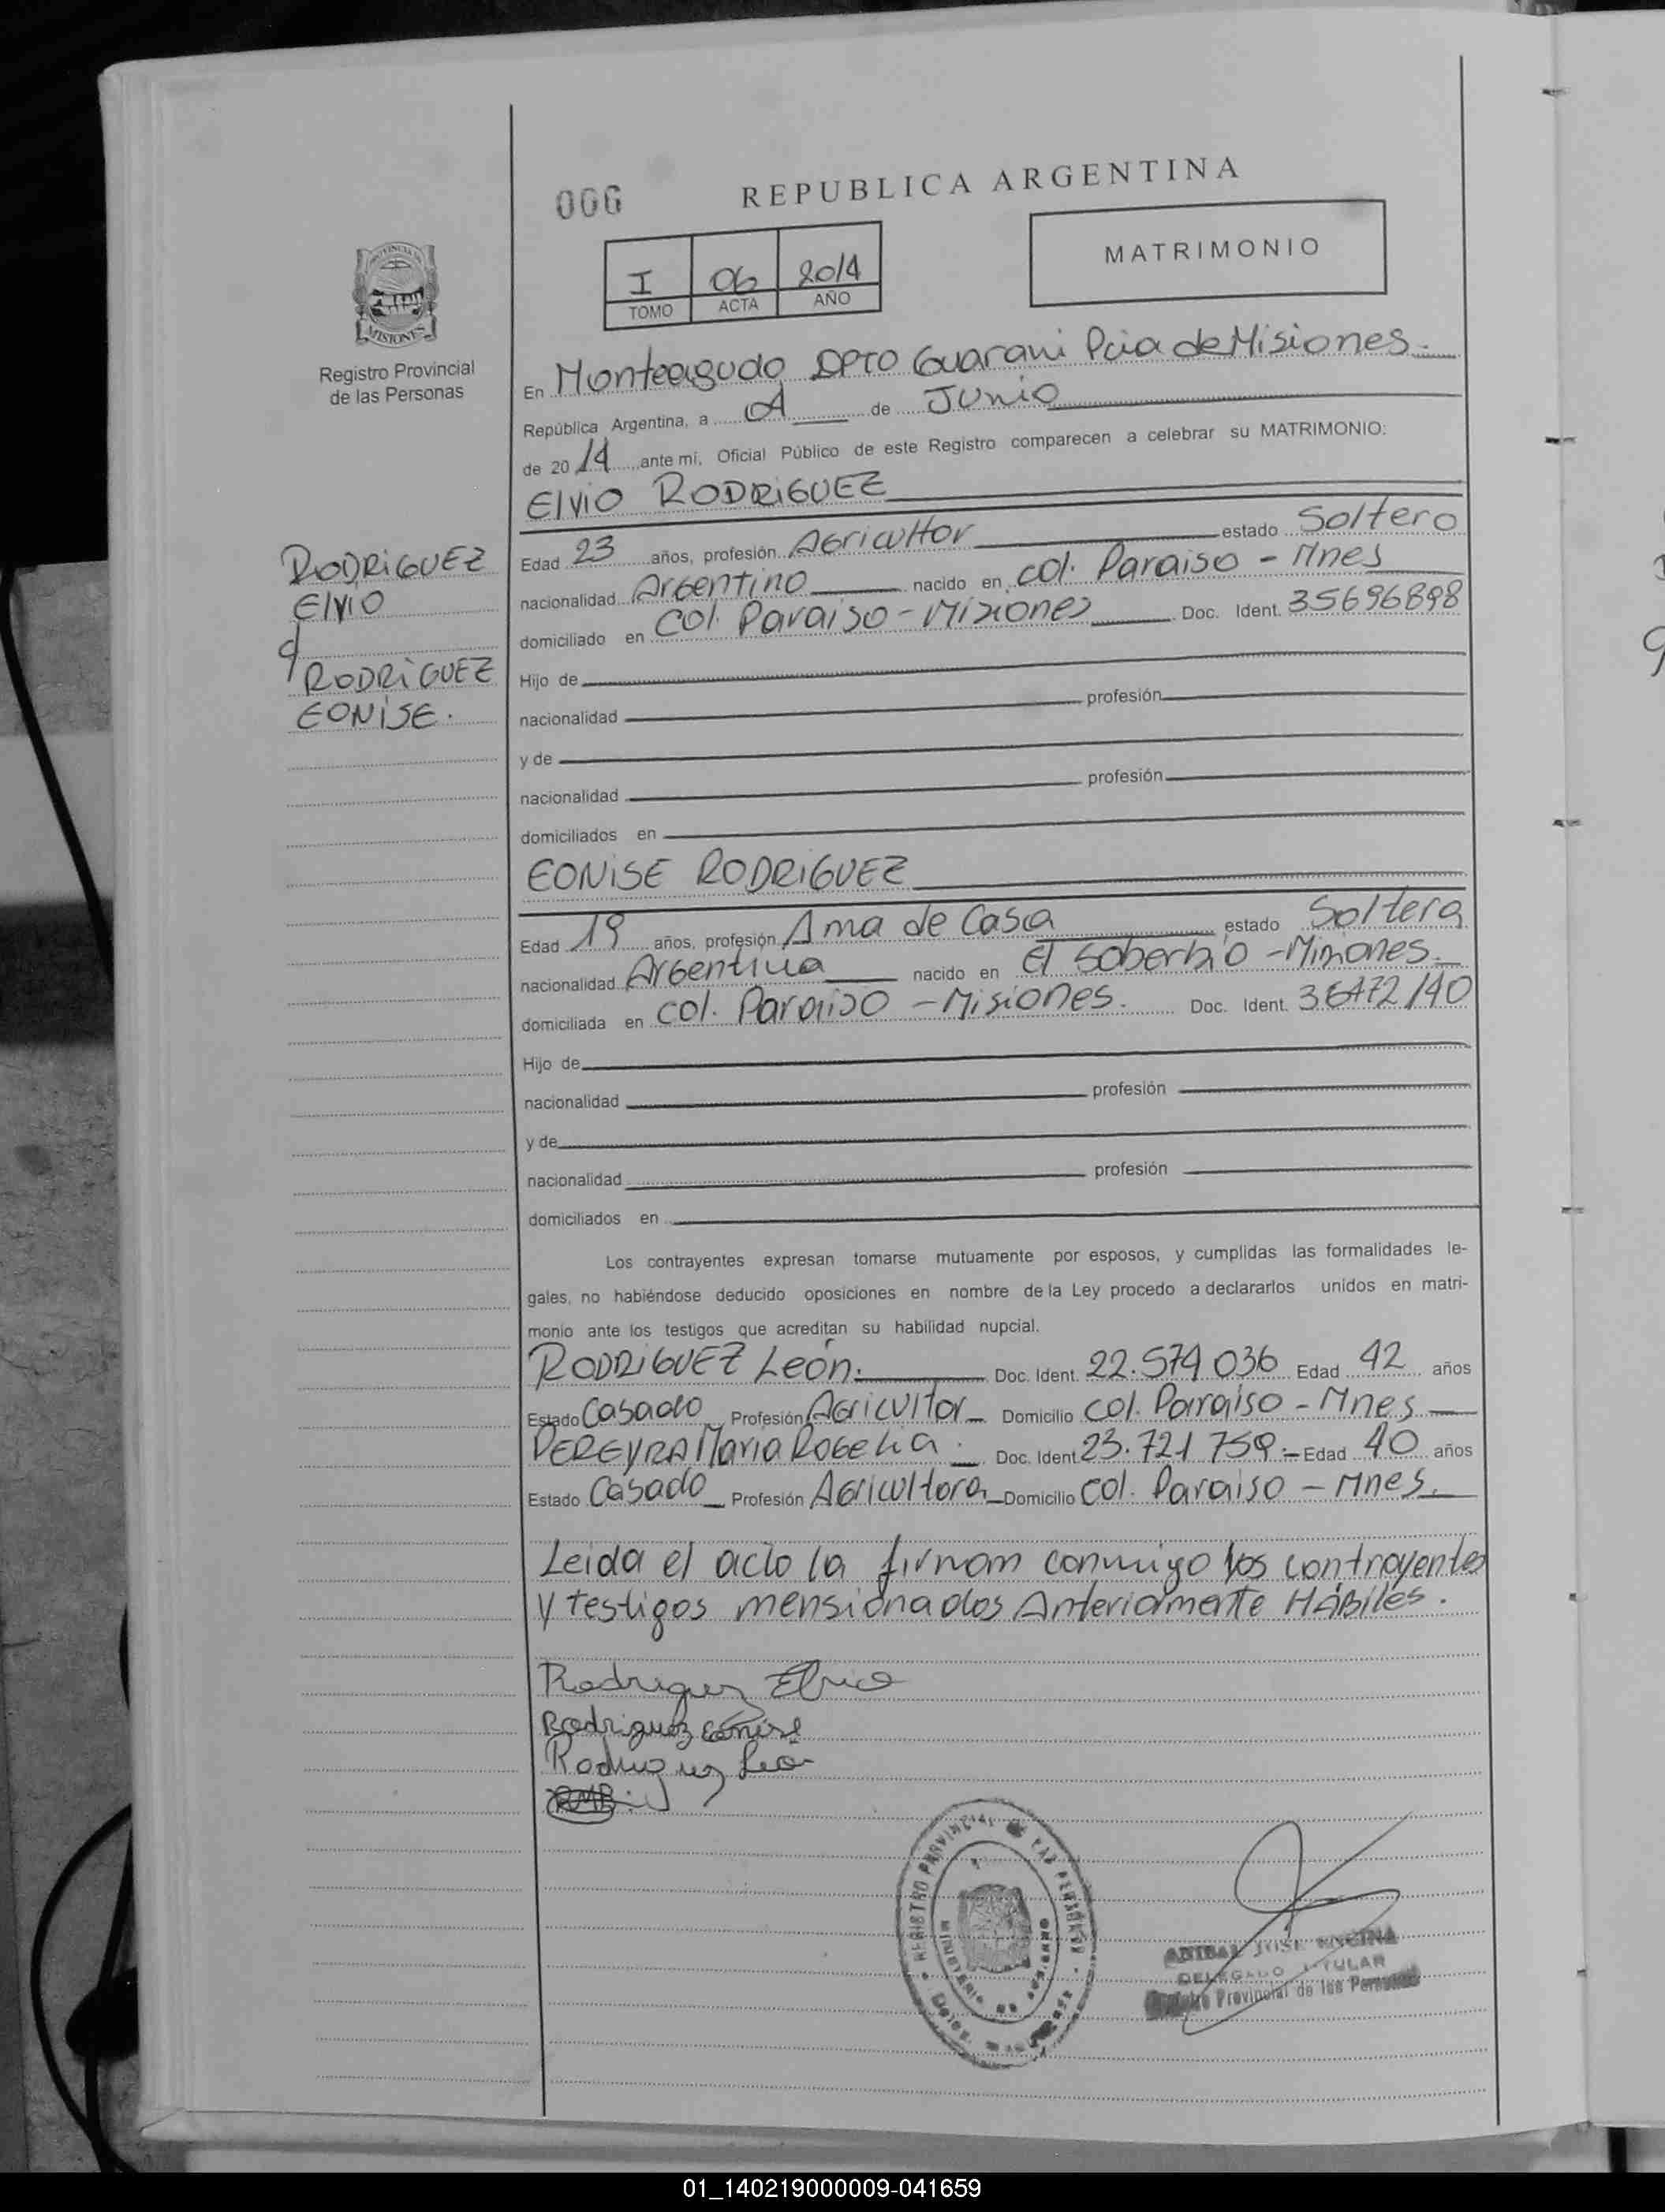 006
REPUBLICA ARGENTINA
MATRIMONIO
I 06 2014
TOMO ACTA AÑO
PROVINCIA
MISIONES
Registro Provincial
de las Personas
En Monteagudo DPTO Guarani Pcia de Misiones.
República Argentina, a 04 de Junio
de 2014 ante mi, Oficial Público de este Registro comparecen a celebrar su MATRIMONIO:
Elvio RODRiGUEZ
RODRiGUEZ
Elvio
y
RODRiGUEZ
EONiSE.
Edad 23 años, profesión Agricultor estado Soltero
nacionalidad Argentino nacido en col. Paraiso - Mnes
domiciliado en col. Paraiso - Misiones Doc. Ident. 35696898
Hijo de
nacionalidad profesión
y de
nacionalidad profesión
domiciliados en
EONiSE RODRiGUEZ
Edad 19 años, profesión Ama de Casa estado Soltera
nacionalidad Argentina nacido en El Soberbio - Misiones.
domiciliada en col. Paraiso - Misiones. Doc. Ident.
Hijo de
nacionalidad profesión
y de
nacionalidad profesión
domiciliados en
Los contrayentes expresan tomarse mutuamente por esposos, y cumplidas las formalidades le-
gales, no habiéndose deducido oposiciones en nombre de la Ley procedo a declararlos unidos en matri-
monio ante los testigos que acreditan su habilidad nupcial.
RODRiGUEZ León. Doc. Ident. 22.574 036 Edad 42 años
Estado Casado Profesión Agricultor Domicilio col. Paraiso - Mnes
PEREYRA Maria Rogelia. Doc. Ident 23.721 759 Edad 40 años
Estado Casado Profesión Agricultora Domicilio col. Paraiso - Mnes.
Leida el acto la firman conmigo los contrayentes
y testigos mensionados Anteriormente HÁBiles.
Rodriguez Elvio
Rodriguez Eonise
Rodriguez Leon
REGISTRO PROVINCIAL DE LAS PERSONAS
MINISTERIO DE GOBIERNO
ANIBAL JOSE
DELEGADO TITULAR
Registro Provincial de las Personas
01_140219000009-041659